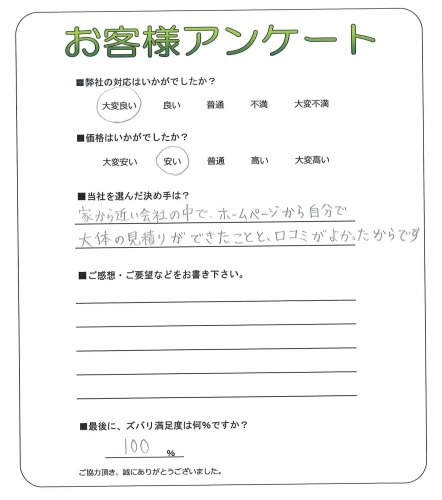 お客様アンケート
■弊社の対応はいかがでしたか？
大変良い 良い 普通 不満 大変不満
■価格はいかがでしたか？
大変安い 安い 普通 高い 大変高い
■当社を選んだ決め手は？
家から近い会社の中で、ホームページから自分で
大体の見積りができたことと、口コミがよかったからです
■ご感想・ご要望などをお書き下さい。
■最後に、ズバリ満足度は何%ですか？
100 %
ご協力頂き、誠にありがとうございました。